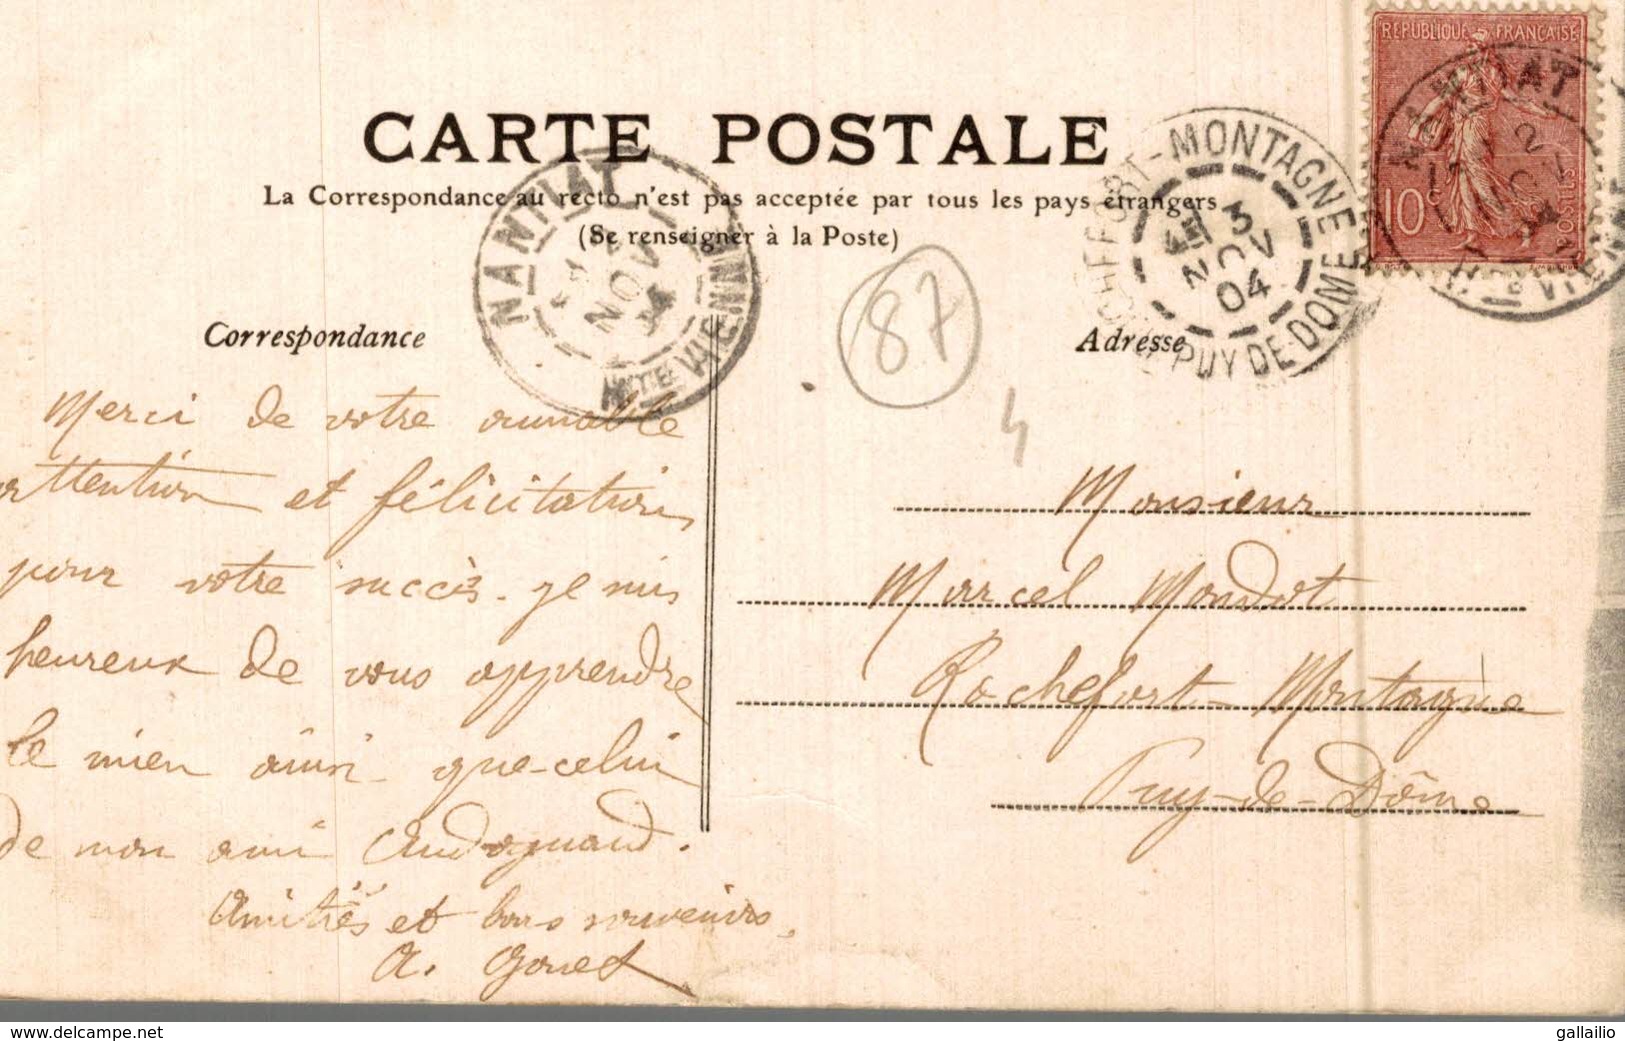 CARTE POSTALE
La Correspondance au recto n'est pas acceptée par tous les pays étrangers
(Se renseigner à la Poste)
REPUBLIQUE FRANÇAISE
10 c
POSTES
NANTIAT
2
NOV
04
HTE VIENNE
ROCHEFORT-MONTAGNE
3
NOV
04
PUY DE DOME
NANTIAT
NOV
HTE VIENNE
87
4
Correspondance
Merci de votre aimable
attention et félicitations
pour votre succès. Je suis
heureux de vous apprendre
le mien ainsi que celui
de mon ami
Amitiés et bons souvenirs,
Adresse
Monsieur
Marcel Mondot
Rochefort-Montagne
Puy-de-Dôme
www.delcampe.net
gallailio